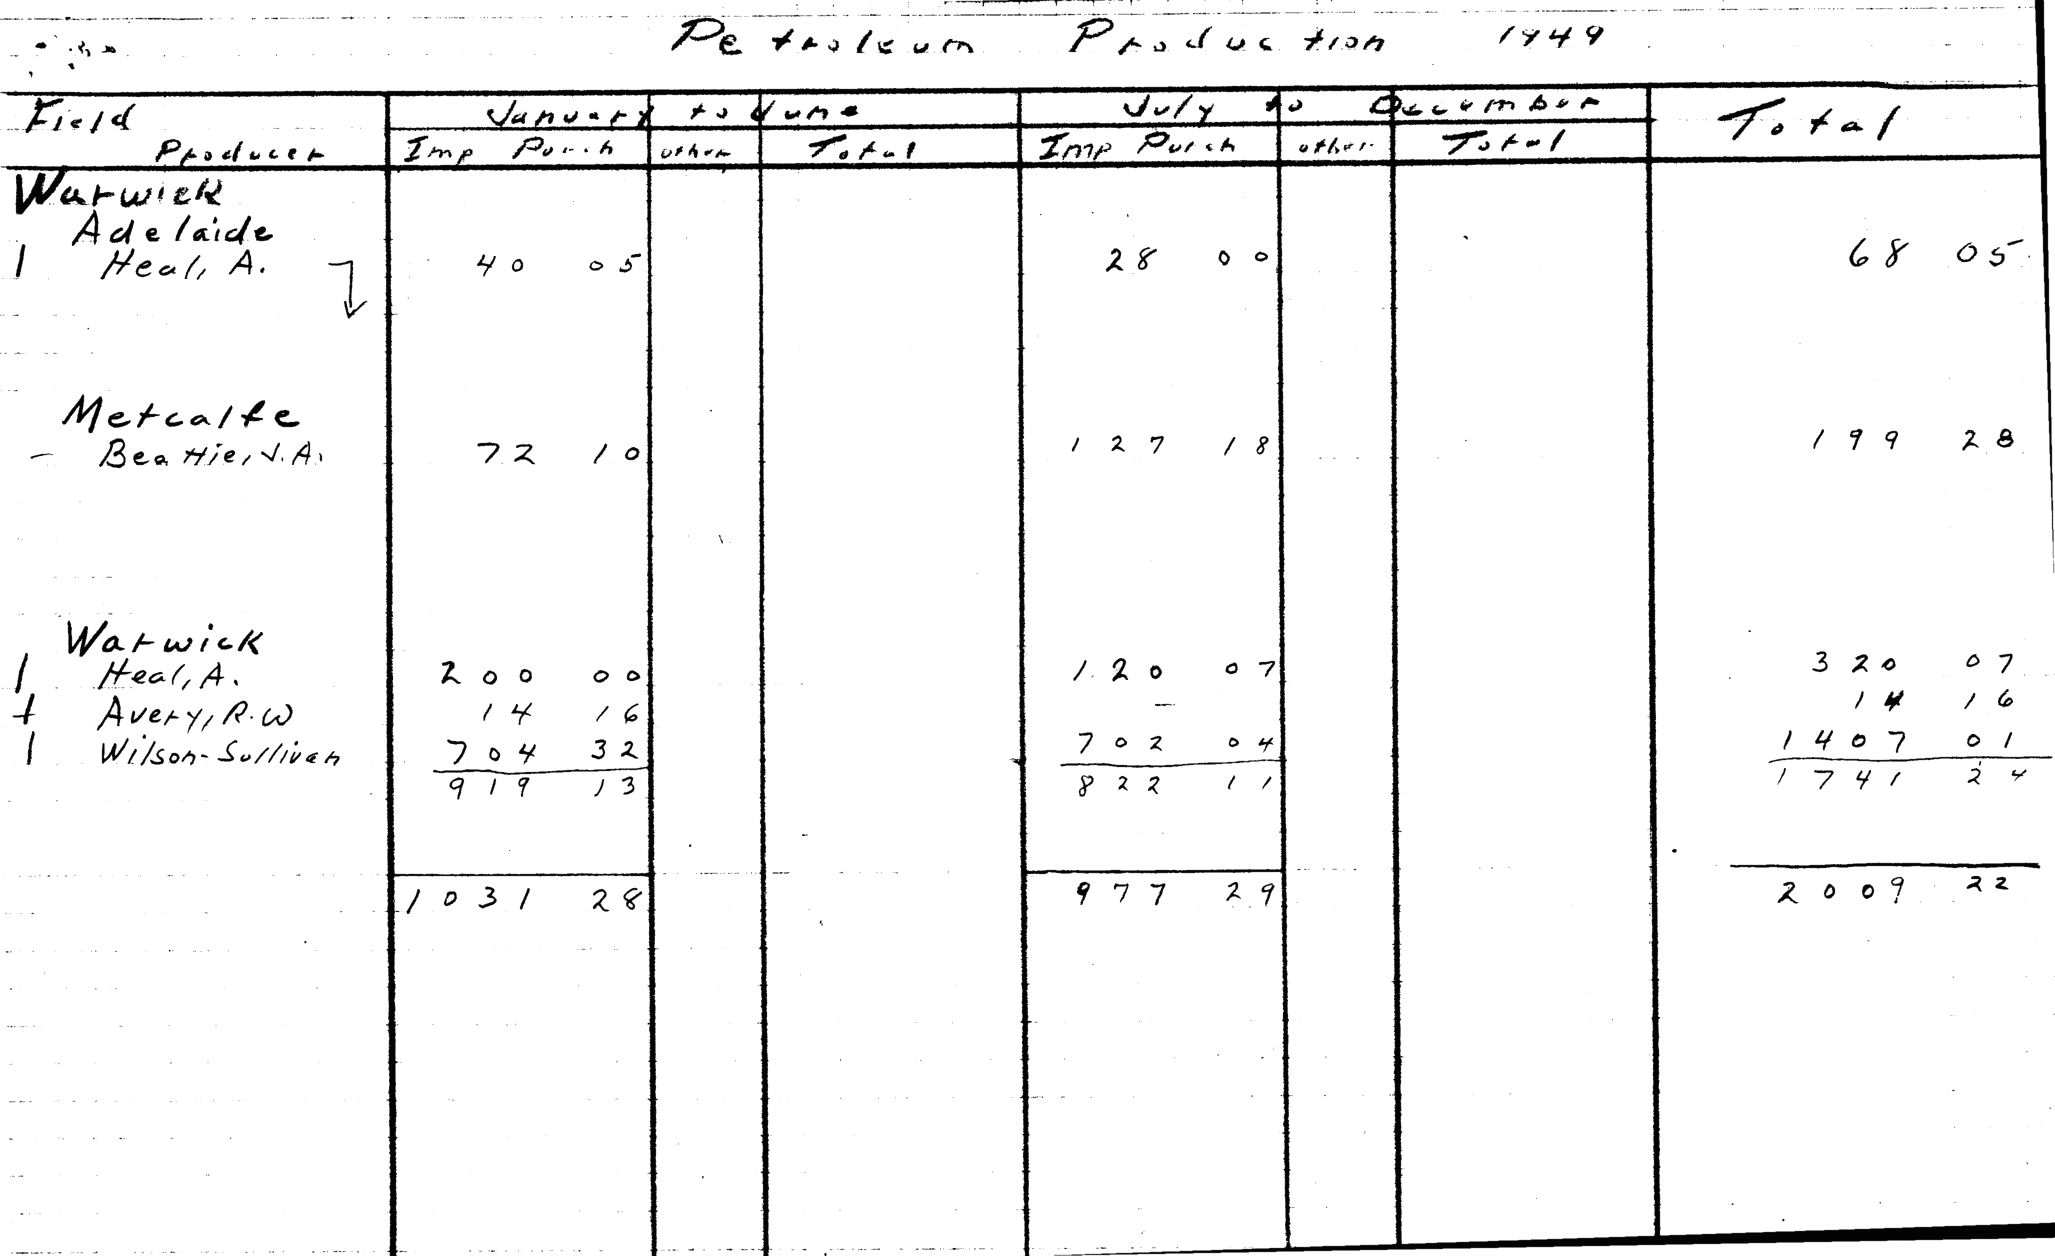 Petroleum Production 1949
Field January to June July to December Total
Producer Imp Purch other Total Imp Purch other Total
Warwick
Adelaide
1 Heal, A. 40 05 28 00 68 05
Metcalfe
- Beattie, J.A. 72 10 127 18 199 28
Warwick
1 Heal, A. 200 00 120 07 320 07
+ Avery, R.W 14 16 - 14 16
1 Wilson-Sullivan 704 32 702 04 1407 01
919 13 822 11 1741 24
1031 28 977 29 2009 22